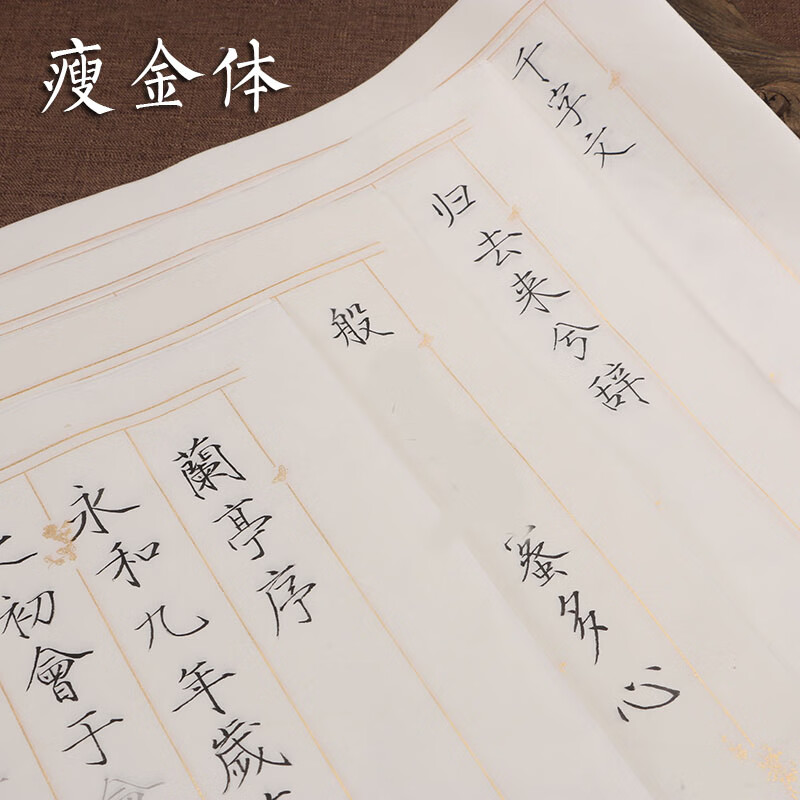 瘦金体
千字文
归去来兮辞
般 蜜多心
蘭亭序
永和九年歲
初會于會